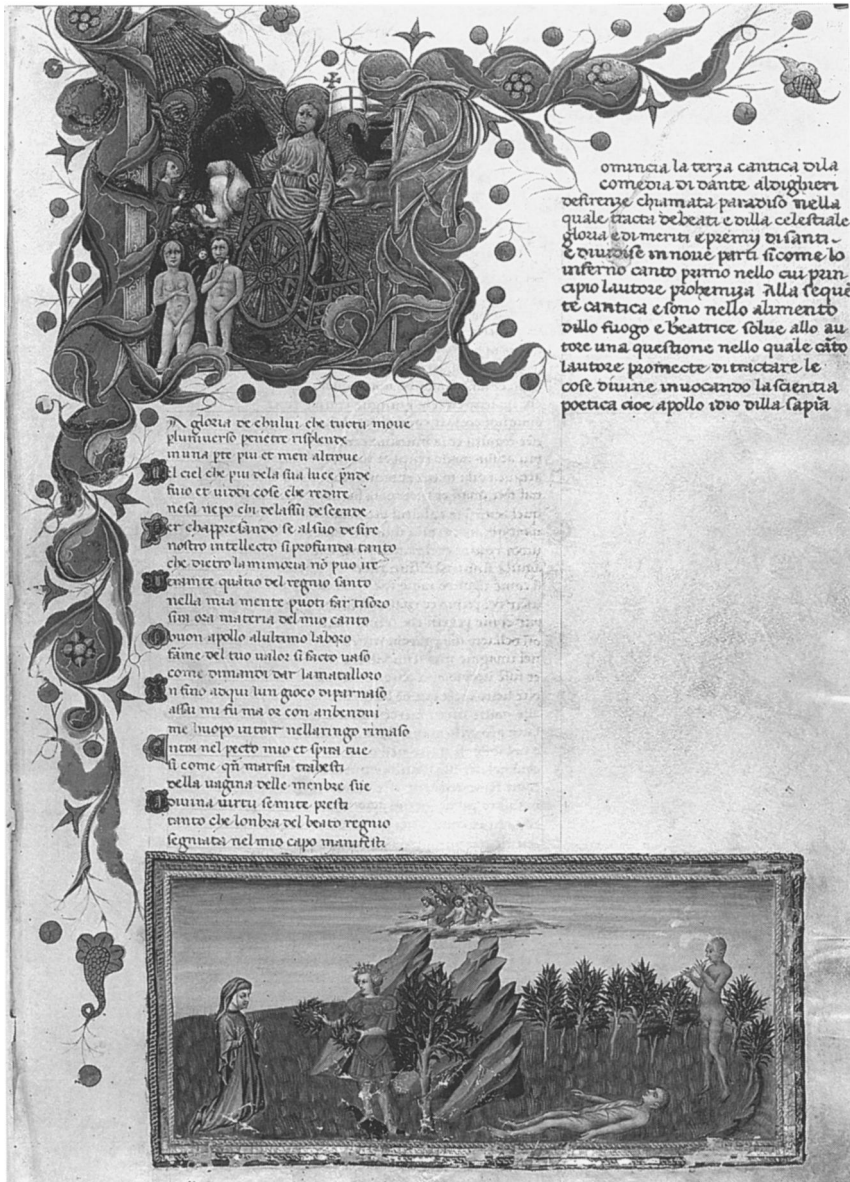 omincia la terza cantica dila
comedia di dante aldighieri
defirenze chiamata paradiso nella
quale tracta debeati e dilla celestiale
gloria e di meriti e premij di santi
e diuidise in noue parti si come lo
inferno canto primo nello cui prin
cipio lautore prohemiza Alla seque
te cantica e sono nello alimento
dillo fuogo e beatrice solue allo au
tore una questione nello quale cãto
lautore promecte di tractare le
cose diuine inuocando la scientia
poetica cioe apollo idio dilla sapia
A gloria de chului che tuctu moue
pluniuerso penetre risplende
in una pte piu et men altroue
el ciel che piu dela sua luce pnde
fuio et uiddi cose che redire
nesa nepo chi delassu descende
er chappresando se al suo desire
nostro intellecto si profunda tanto
che dietro la mimoria nõ puo ire
eramte quãtio del regnio santo
nella mia mente puoti far tisoro
sira ora materia del mio canto
buon apollo alultimo laboro
fame del tuo ualor si facto uaso
come dimandi dar lamatalloro
n fino adqui lun gioco di parnaso
assu mi fu ma or con anbendui
me huopo intrar nellaringo rimaso
ntra nel pecto mio et spira tue
si come qñ marsia trahesti
della uagina delle menbre sue
diuina uirtu se mite presti
tanto che lonbra del beato regnio
segniata nel mio capo manifesti